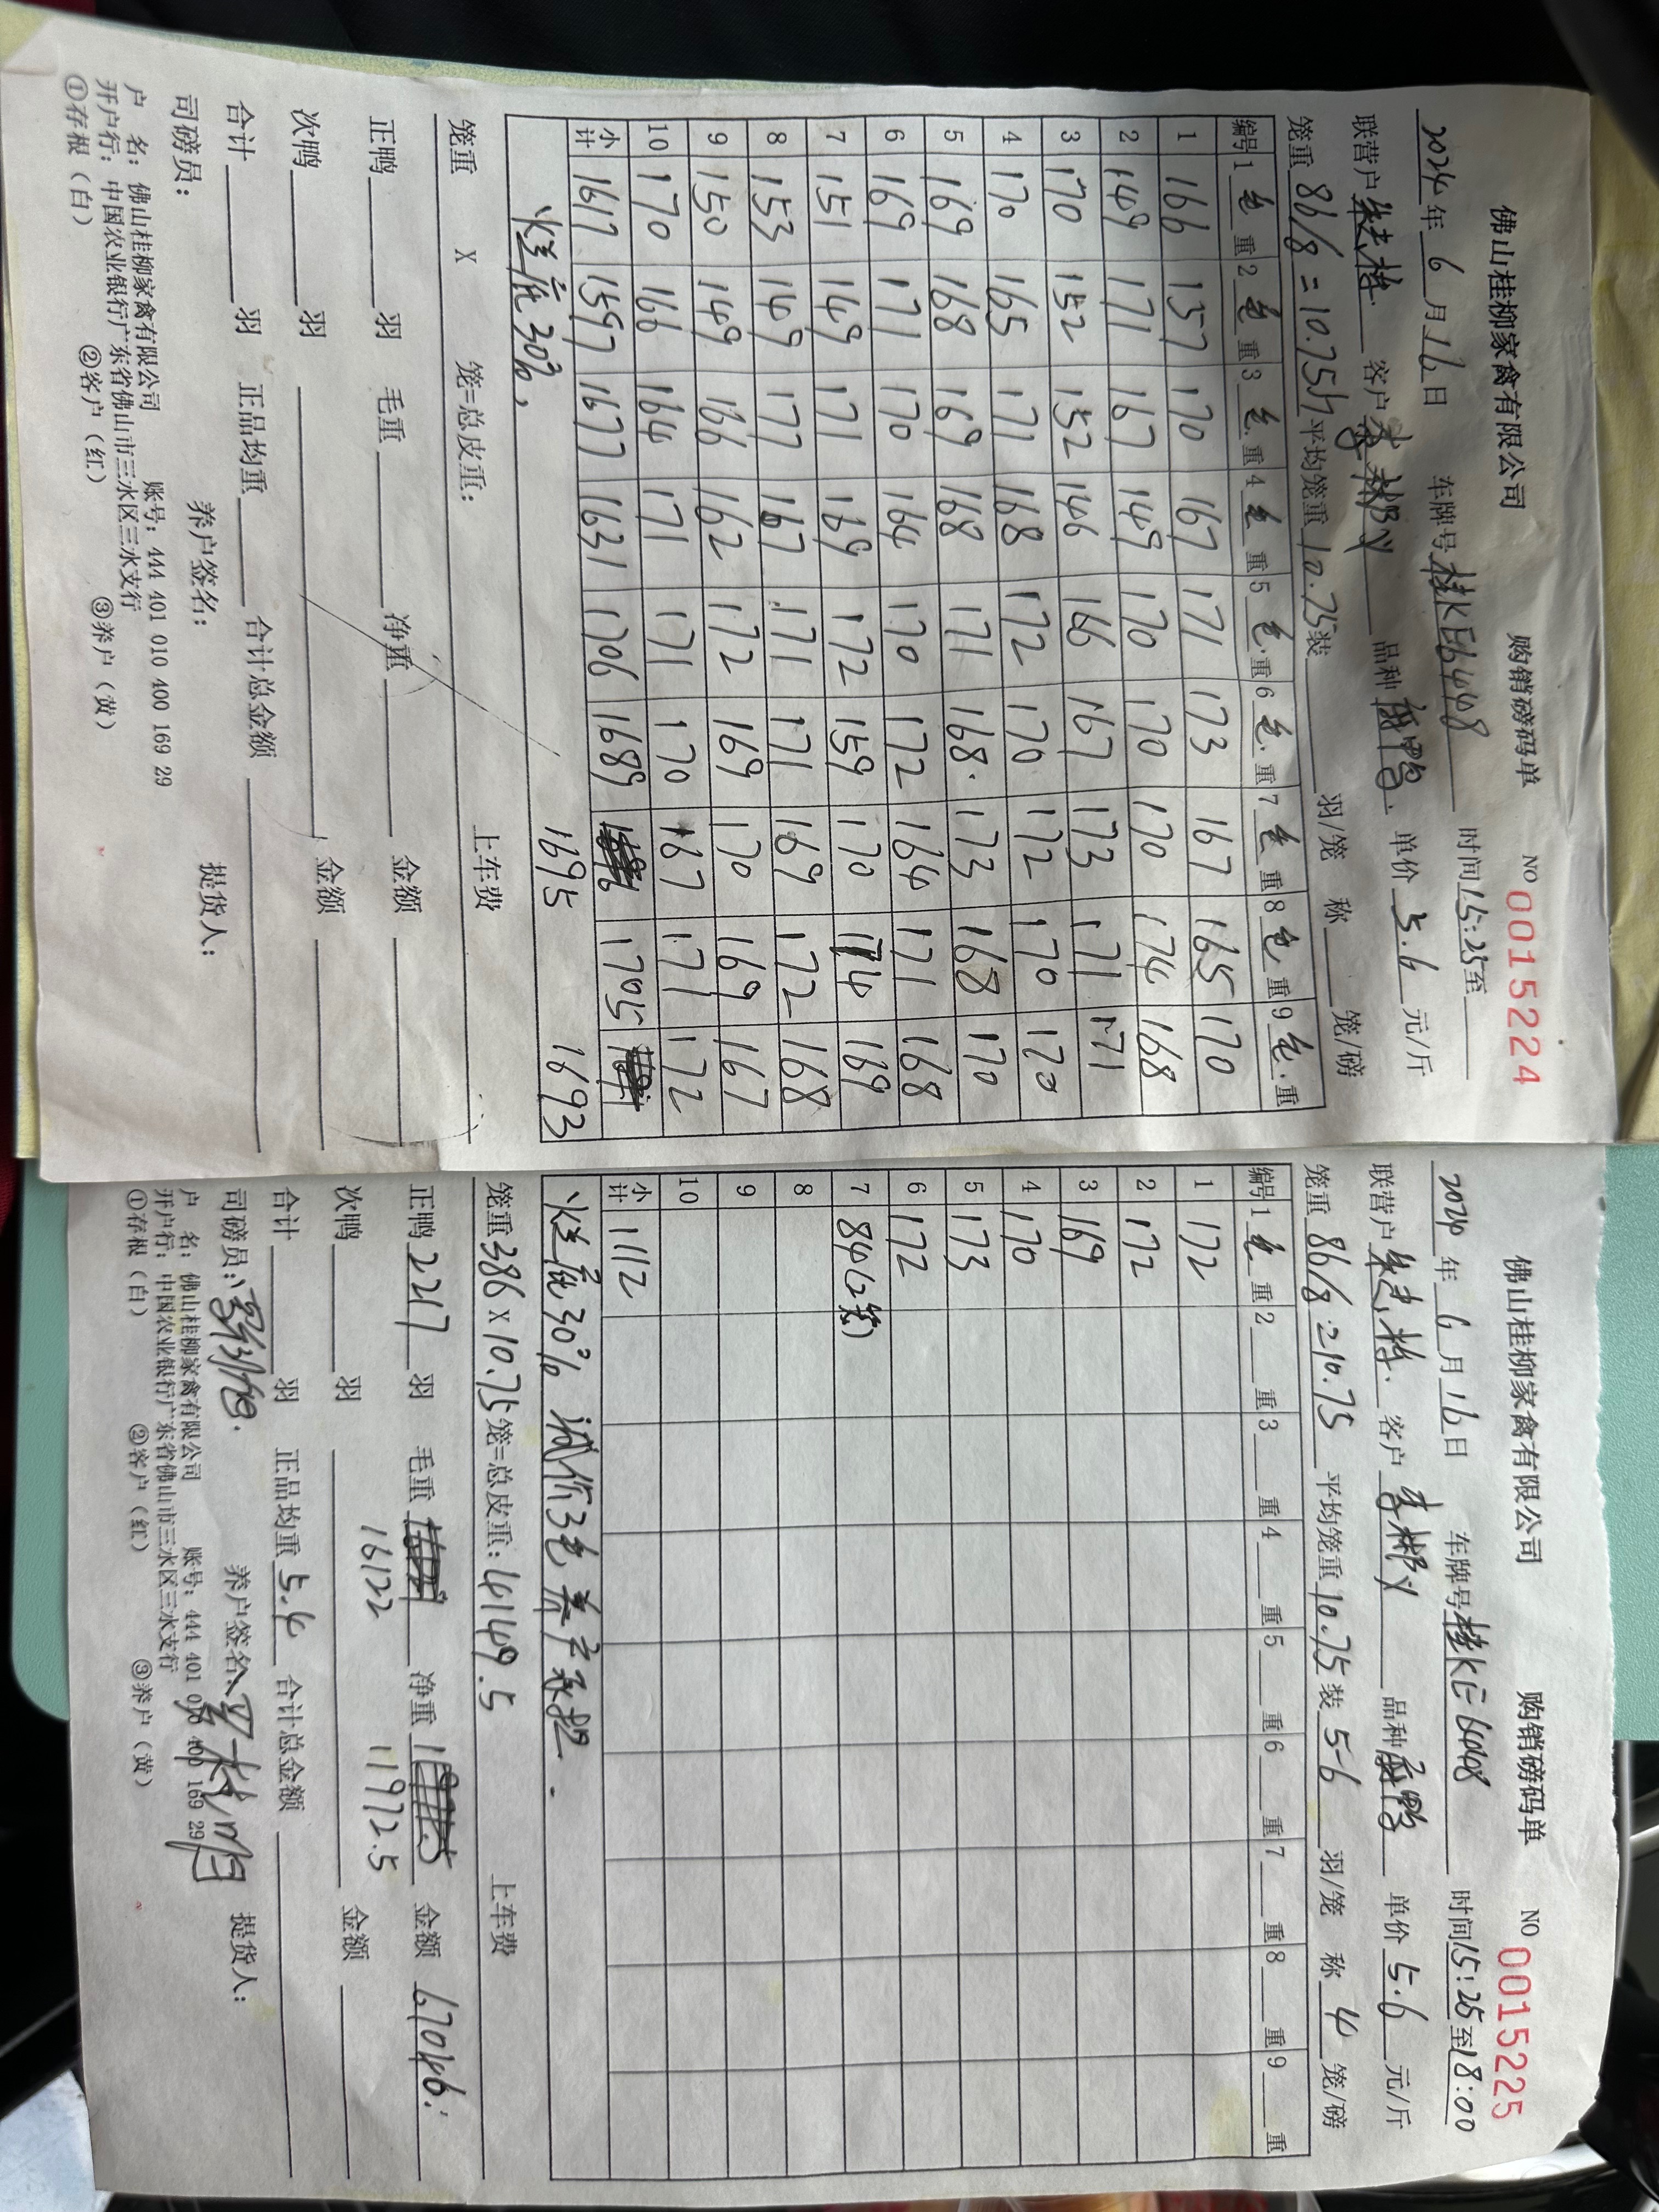 佛山桂柳家禽有限公司 购销磅码单 NO 0015224
2024年6月16日 车牌号桂KE6448 时间15:25至
联营户 客户李 品种 单价5.6元/斤
笼重86/8=10.75斤平均笼重10.75装 羽/笼 称 笼/磅
编号 1毛重 2毛重 3毛重 4毛重 5毛重 6毛重 7毛重 8毛重 9毛重
1 166 157 170 167 171 173 167 165 170
2 149 171 167 149 170 170 170 174 168
3 170 152 152 146 166 167 173 171 171
4 170 165 171 168 172 170 172 170 170
5 169 168 169 168 171 168 173 168 170
6 169 171 170 164 170 172 164 171 168
7 151 149 171 169 172 159 170 174 169
8 153 149 177 167 171 171 169 172 168
9 150 149 166 162 172 169 170 169 167
10 170 166 164 171 171 170 167 171 172
小计 1617 1597 1677 1631 1706 1689 1705
1695 1693
烂底30%,
笼重 X 笼=总皮重: 上车费
正鸭 羽 毛重 净重 金额
次鸭 羽 金额
合计 羽 正品均重 合计总金额
司磅员: 养户签名: 提货人:
户 名: 佛山桂柳家禽有限公司 账号: 444 401 010 400 169 29
开户行: 中国农业银行广东省佛山市三水区三水支行
①存根(白) ②客户(红) ③养户(黄)
佛山桂柳家禽有限公司 购销磅码单 NO 0015225
2024年6月16日 车牌号桂KE6448 时间15:25至18:00
联营户 客户李 品种 单价5.6元/斤
笼重86/8=10.75 平均笼重10.75装5-6羽/笼 称4笼/磅
编号 1毛重 2 重 3 重 4 重 5 重 6 重 7 重 8 重 9 重
1 172
2 172
3 169
4 170
5 173
6 172
7 84(2笼)
8
9
10
小计 1112
烂底30% 减价3毛 养户承担.
笼重386X10.75笼=总皮重: 4149.5 上车费
正鸭2217羽 毛重 净重 金额67046.
16122 11972.5
次鸭 羽 金额
合计 羽 正品均重5.4 合计总金额
司磅员: 养户签名: 提货人:
户 名: 佛山桂柳家禽有限公司 账号: 444 401 010 400 169 29
开户行: 中国农业银行广东省佛山市三水区三水支行
①存根(白) ②客户(红) ③养户(黄)